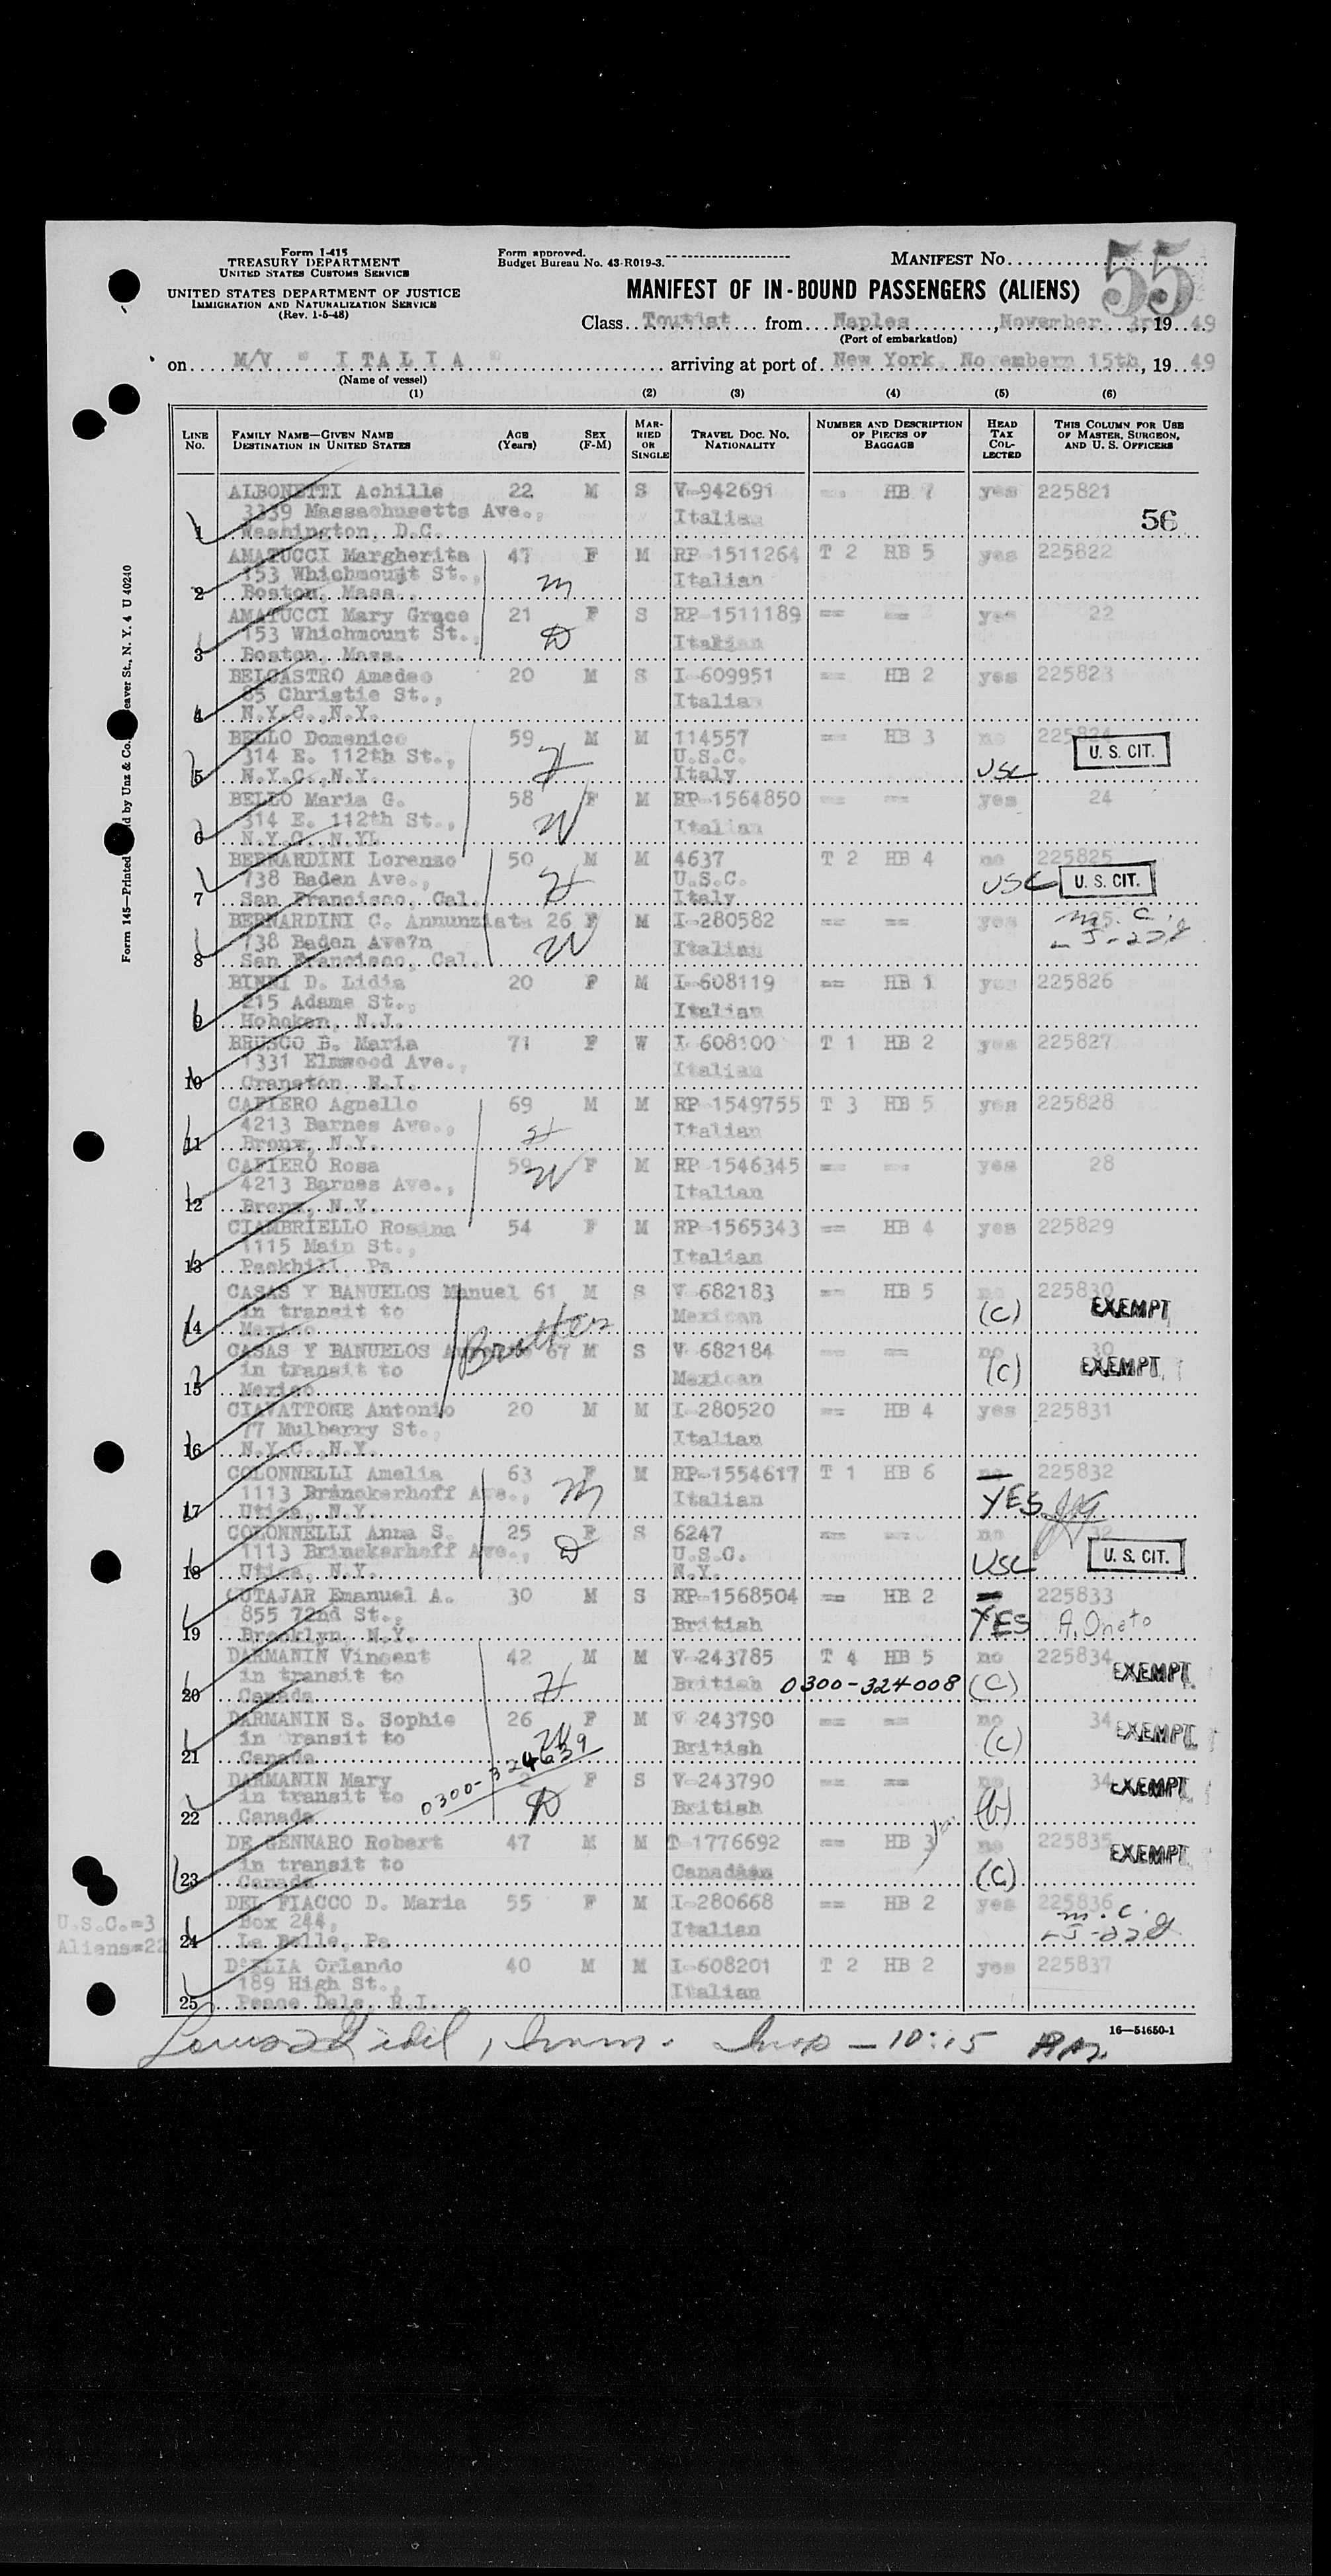 Form I-415
TREASURY DEPARTMENT
UNITED STATES CUSTOMS SERVICE
UNITED STATES DEPARTMENT OF JUSTICE
IMMIGRATION AND NATURALIZATION SERVICE
(Rev. 1-5-48)
Form approved.
Budget Bureau No. 43-R019-3.
MANIFEST No. 55
MANIFEST OF IN-BOUND PASSENGERS (ALIENS)
Class Tourist from Naples, November 3rd, 19 49
(Port of embarkation)
on M/V " I T A L I A " arriving at port of New York, Novembern 15th, 19 49
(Name of vessel)
(1) (2) (3) (4) (5) (6)
LINE No. FAMILY NAME—GIVEN NAME DESTINATION IN UNITED STATES AGE (Years) SEX (F-M) MARRIED OR SINGLE TRAVEL DOC. NO. NATIONALITY NUMBER AND DESCRIPTION OF PIECES OF BAGGAGE HEAD TAX COLLECTED THIS COLUMN FOR USE OF MASTER, SURGEON, AND U. S. OFFICERS
ALBONETTI Achille 22 M S V-942691 == HB 7 yes 225821
3339 Massachusetts Ave., Italian 56
1 Washington, D.C.
AMATUCCI Margherita 47 F M RP-1511264 T 2 HB 5 yes 225822
153 Whichmount St., M Italian
2 Boston, Mass.
AMATUCCI Mary Grace 21 F S RP-1511189 == == yes 22
153 Whichmount St., D Italian
3 Boston, Mass.
BELCASTRO Amedeo 20 M S I-609951 == HB 2 yes 225823
85 Christie St., Italian
4 N.Y.C.,N.Y.
BELLO Domenico 59 M M 114557 == HB 3 no 225824
314 E. 112th St., H U.S.C. U. S. CIT.
5 N.Y.C.,N.Y. Italy USC
BELLO Maria G. 58 F M RP-1564850 == == yes 24
314 E. 112th St., W Italian
6 N.Y.C.,N.YL
BERNARDINI Lorenzo 50 M M 4637 T 2 HB 4 no 225825
738 Baden Ave., H U.S.C. USC U. S. CIT.
7 San Francisco, Cal. Italy
BERNARDINI C. Annunziata 26 F M I-280582 == == yes 25 M.C.
738 Baden Ave?n W Italian
8 San Francisco, Cal.
BINNI D. Lidia 20 F M I-608119 == HB 1 yes 225826
215 Adams St., Italian
9 Hoboken, N.J.
BRUSCO B. Maria 71 F W I-608100 T 1 HB 2 yes 225827
1331 Elmwood Ave., Italian
10 Cranston, R.I.
CAFIERO Agnello 69 M M RP-1549755 T 3 HB 5 yes 225828
4213 Barnes Ave., H Italian
11 Bronx, N.Y.
CAFIERO Rosa 59 F M RP-1546345 == == yes 28
4213 Barnes Ave., W Italian
12 Bronx, N.Y.
CIAMBRIELLO Rosina 54 F M RP-1565343 == HB 4 yes 225829
1115 Main St., Italian
13 Peckhill Pa
CASAS Y BANUELOS Manuel 61 M S V-682183 == HB 5 no 225830
in transit to Mexican (C) EXEMPT
14 Mexico
CASAS Y BANUELOS 67 M S V-682184 == == no 30
in transit to Brother Mexican (C) EXEMPT
15 Mexico
CIAVATTONE Antonio 20 M M I-280520 == HB 4 yes 225831
77 Mulberry St., Italian
16 N.Y.C.,N.Y.
COLONNELLI Amelia 63 F M RP-1554617 T 1 HB 6 225832
1113 Brinckerhoff Ave., M Italian YES
17 Utica, N.Y.
COLONNELLI Anna S. 25 F S 6247 == == no 32
1113 Brinckerhoff Ave., D U.S.C. USC U. S. CIT.
18 Utica, N.Y. N.Y.
CUTAJAR Emanuel A. 30 M S RP-1568504 == HB 2 225833
855 72nd St., British YES A. Oneto
19 Brooklyn N.Y.
DARMANIN Vincent 42 M M V-243785 T 4 HB 5 no 225834
in transit to H British 0300-324008 (C) EXEMPT
20 Canada
DARMANIN S. Sophie 26 F M V-243790 == == no 34
in transit to W British (C) EXEMPT
21 Canada 0300-324639
DARMANIN Mary 2 F S V-243790 == == no 34
in transit to D British (b) EXEMPT
22 Canada
DE GENNARO Robert 47 M M T-1776692 == HB 3 no 225835
in transit to Canadian (C) EXEMPT
23 Canada
DEL FIACCO D. Maria 55 F M I-280668 == HB 2 yes 225836
Box 244, Italian M.C.
24 La Belle, Pa
D'ELIA Orlando 40 M M I-608201 T 2 HB 2 yes 225837
189 High St., Italian
25 Peace Dale, R.I.
U.S.C.=3
Aliens=22
Imm. Insp — 10:15 AM
16—54650-1
Form 145—Printed and by Unz & Co. eaver St., N. Y. 4 U 40240